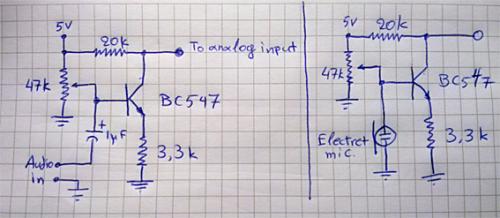 5V
20k
To analog input
47k
BC547
+
1μF
3,3k
Audio
in
5V
20k
47k
BC547
Electret
mic.
3,3k